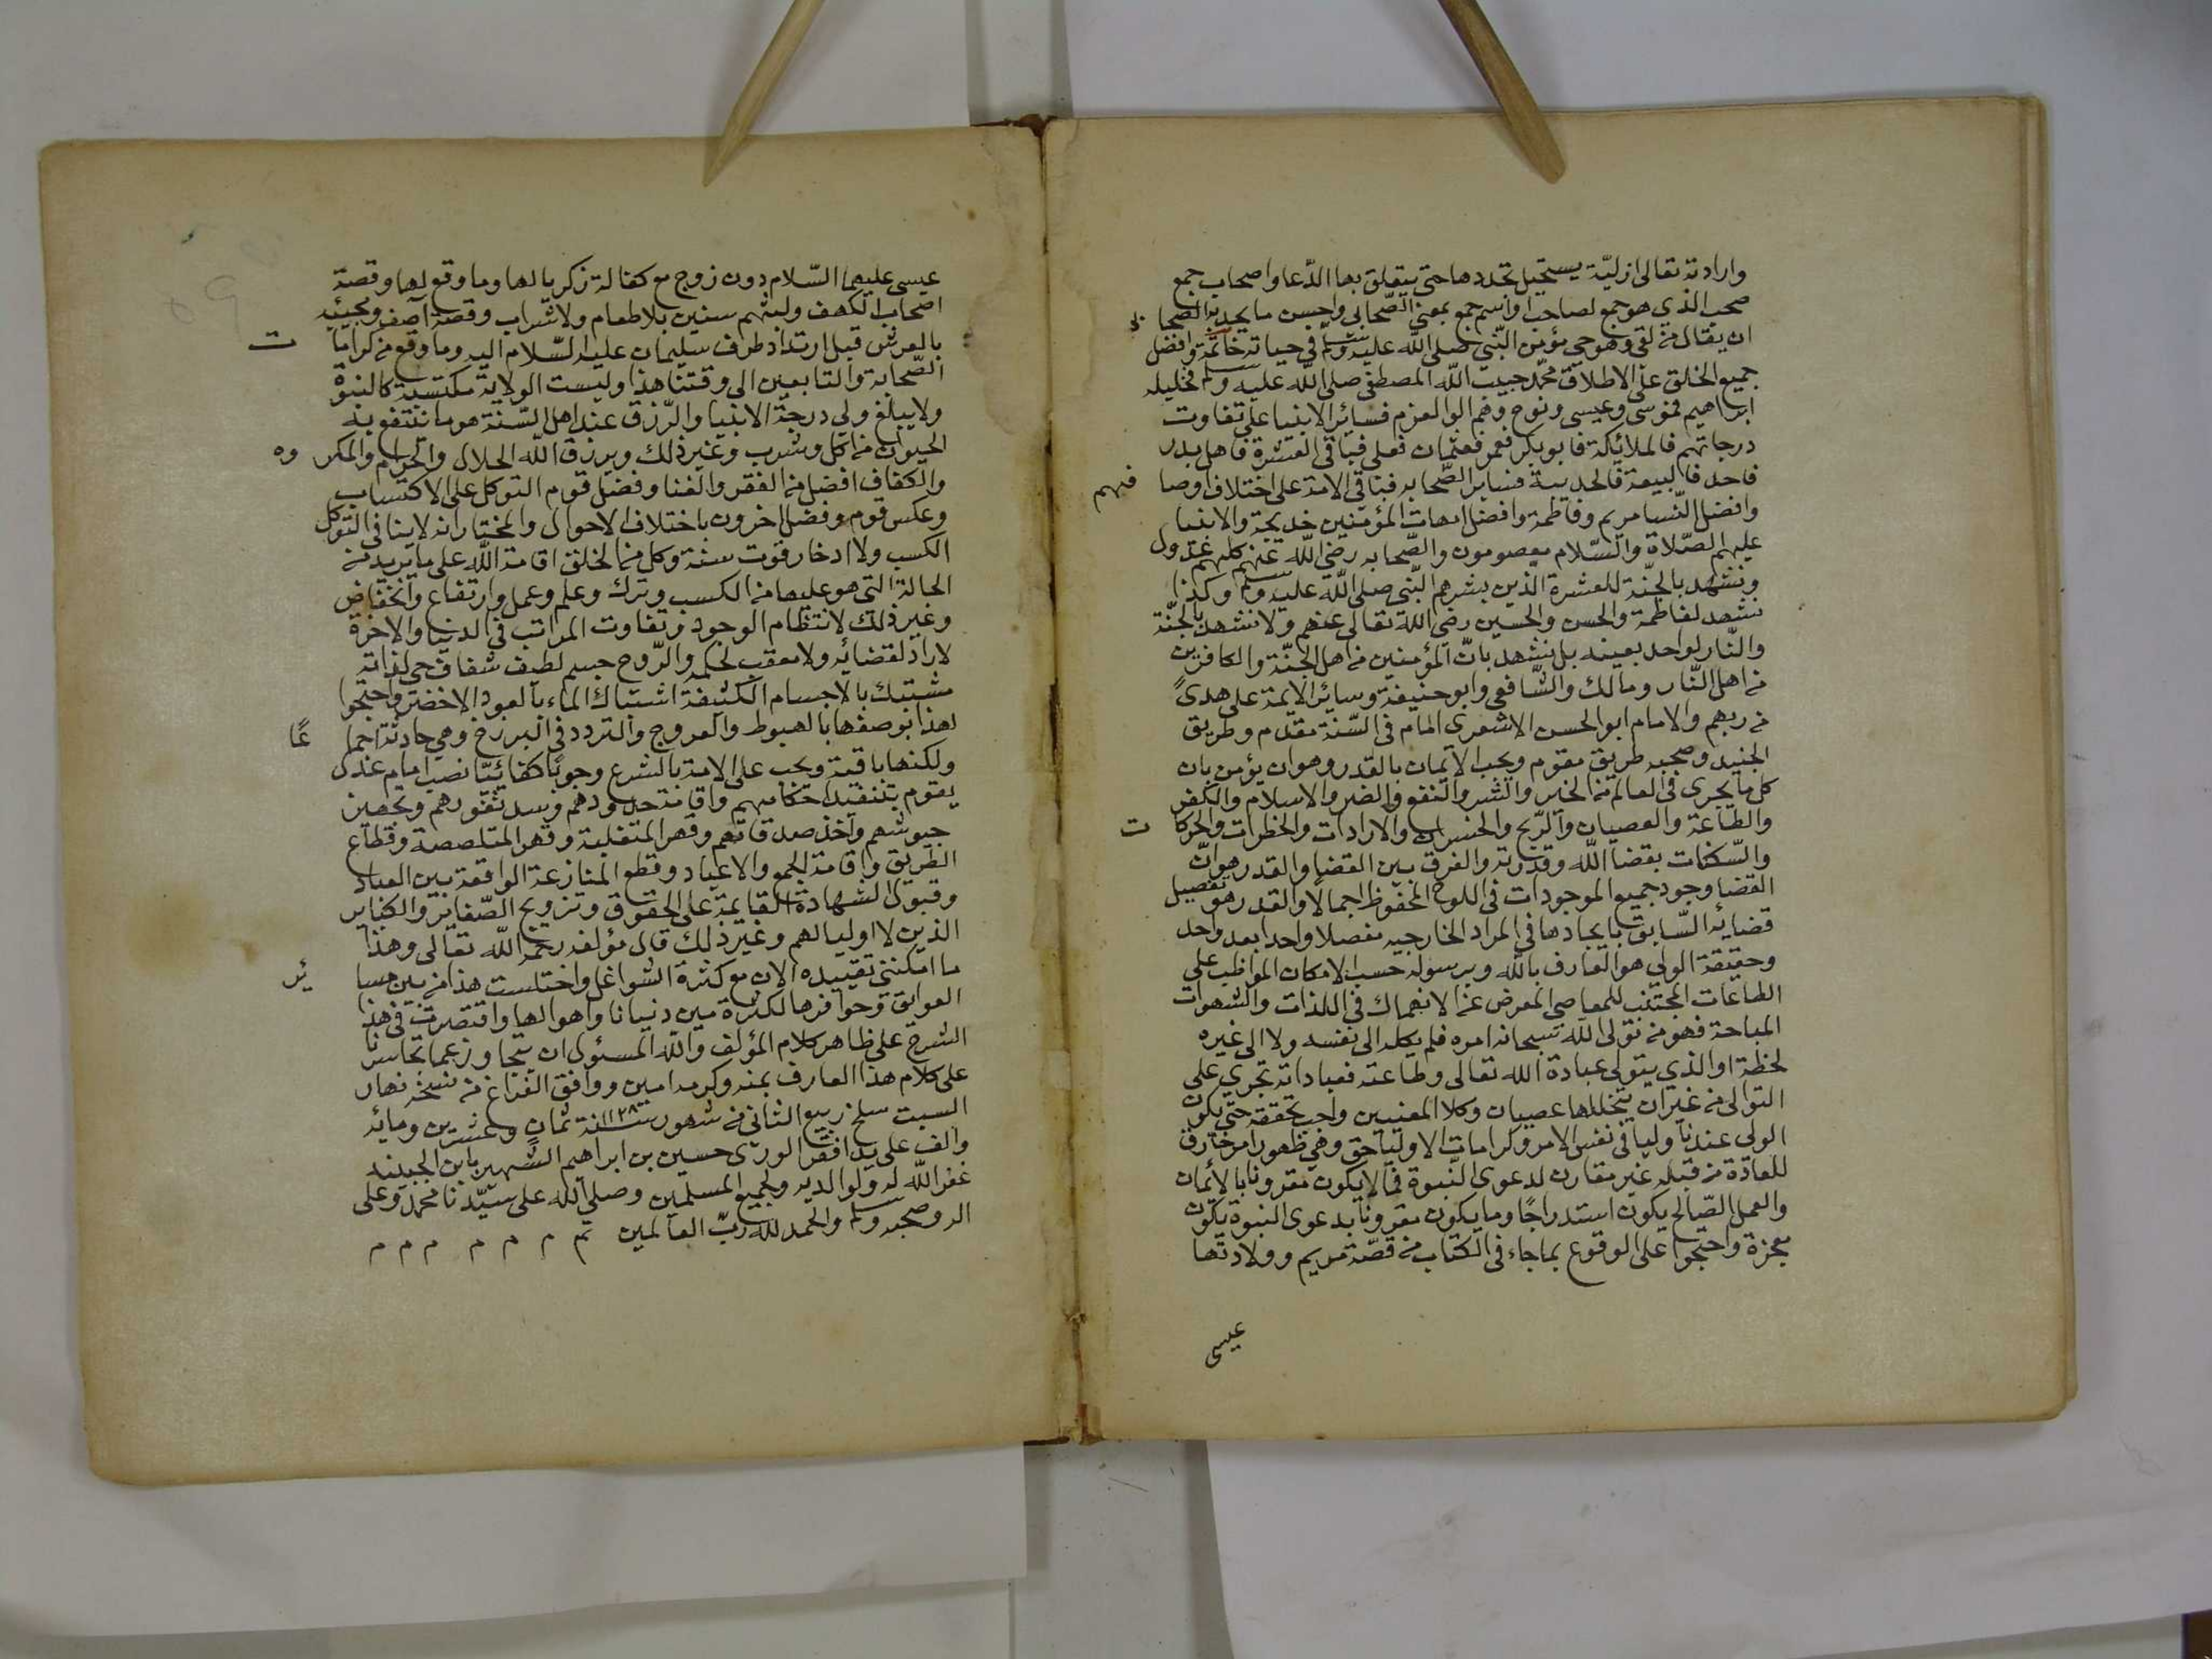 وارادته تعالى ازليّة يستحيل تجددها حتى يتعلق بها الدّعا واصحاب جمع
صحب الذي هو جمع لصاحب او اسم جمع بمعنى الصّحابي واحسن ما يحد به الصحابي
ان يقال من لقى وهو حي مؤمن النّبي صلى اللّه عليه وسلم في حياته خاتمة وافضل
جميع الخلق على الاطلاق محمّد حبيب اللّه المصطفى صلى اللّه عليه وسلم فخليله
ابراهيم فموسى وعيسى ونوح وهم الوا العزم فسائر الانبيا على تفاوت
درجاتهم فالملائكة فابو بكر فعمر فعثمان فعلى فباقى العشرة فاهل بدر
فاحد فالبيعة فالحديبية فساير الصّحابه فباقى الامة على اختلاف اوصافهم
وافضل النّسا مريم وفاطمة وافضل امهات المؤمنين خديجة والانبيا
عليهم الصّلاة والسّلام معصومون والصّحابه رضى اللّه عنهم كلهم عدول
ونشهد بالجنّة للعشرة الّذين بشرهم النّبي صلى اللّه عليه وسلم وكذا
نشهد لفاطمة والحسن والحسين رضى اللّه تعالى عنهم ولا نشهد بالجنّة
والنّار لواحد بعينه بل نشهد بانّ المؤمنين من اهل الجنّة والكافرين
من اهل النّار ومالك والشّافعي وابو حنيفة وسائر الايمة على هدىً
من ربهم والامام ابو الحسن الاشعرى امام في السّنة مقدم وطريق
الجنيد وصحبه طريق مقوم ويجب الايمان بالقدر وهو ان يؤمن بان
كل ما يجرى في العالم من الخير والشر والنفع والضر والاسلام والكفر
والطاعة والعصيان والرّبح والخسران والارادات والخطرات والحركات
والسّكنات بقضا اللّه وقدرته والفرق بين القضا والقدر هو انّ
القضا وجود جميع الموجودات في اللوح المحفوظ اجمالا والقدر هو تفصيل
قضائه السّابق بايجادها في المواد الخارجيه مفصلا واحدا بعد واحد
وحقيقة الولي هو العارف باللّه وبرسوله حسب الامكان المواظب على
الطاعات المجتنب للمعاصي المعرض عن الانهماك في اللذات والشهوات
المباحة فهو من تولى اللّه سبحانه امره فلم يكله الى نفسه ولا الى غيره
لحظة او الذي يتولى عبادة اللّه تعالى وطاعته فعباداته تجري على
التوالى من غير ان يتخللها عصيان وكلا المعنيين واجب تحققه حتى يكون
الولى عندنا وليا في نفس الامر وكرامات الاوليا حق وهي ظهور امر خارق
للعادة من قبله غير مقارن لدعوى النّبوة فما لا يكون مقرونا بالايمان
والعمل الصّالح يكون استدراجًا وما يكون مقرونا بدعوى النبوة يكون
معجزة واحتجوا على الوقوع بما جاء في الكتاب من قصّة مريم وولادتها
عيسى
عيسى عليهما السّلام دون زوج مع كفالة زكريا لها وما وقع لها وقصة
اصحاب الكهف ولبثهم سنين بلا طعام ولا شراب وقصة آصف ومجيئه
بالعرش قبل ارتداد طرف سليمان عليه السّلام اليه وما وقع من كرامات
الصّحابة والتابعين الى وقتنا هذا وليست الولاية مكتسبة كالنبوة
ولا يبلغ ولى درجة الانبيا والرّزق عند اهل السّنة هو ما ننتفع به
الحيوان من اكل وشرب وغير ذلك ويرزق اللّه الحلال والحرام والمكروه
والكفاف افضل من الفقر والغنا وفضل قوم التوكل على الاكتساب
وعكس قوم وفضل اخرون باختلاف الاحوال والمختار انه لا ينافى التوكل
الكسب ولا ادخار قوت سنة وكل من الخلق اقامة اللّه على ما يريد من
الحالة التى هو عليها من الكسب وترك وعلم وعمل وارتفاع وانخفاض
وغير ذلك لانتظام الوجود وتفاوت المراتب في الدنيا والاخرة
لا رادّ لقضائه ولا معقب لحكمه والرّوح جسم لطيف شفاف حي لذاته
مشتبك بالاجسام الكثيفة اشتباك الماء بالعود الاخضر واحتجوا
لهذا بوصفها بالهبوط والعروج والتردد في البرزخ وهي حادثة اجماعًا
ولكنها باقية ويجب على الامة بالشرع وجوبًا كفائيّا نصب امام عدل
يقوم بتنفيذ احكامهم واقامة حدودهم وسد ثغورهم وتجهيز
جيوشهم واخذ صدقاتهم وقهر المتغلبة وقهر المتلصصة وقطاع
الطّريق واقامة الجمع والاعياد وقطع المنازعة الواقعة بين العباد
وقبول الشهادة القايمة على الحقوق وتزويج الصّغاير والكباير
الذين لا اوليا لهم وغير ذلك قال مؤلفه رحمه اللّه تعالى وهذا
ما امكننى تقييده الان مع كثرة الشواغل واختلست هذا من بين مساير
العوايق وحوافرها لكثرة مين دنيانا واهوالها واقتصرت في هذا
الشرح على ظاهر كلام المؤلف واللّه المسئول ان يتجاوز عما تجاسرنا
على كلام هذا العارف بمنه وكرمه امين ووافق الفراغ من نسخه نهار
السبت سلخ ربيع الثانى من شهور سنة ١١٢٨ ثمان وعشرين ومائه
والف على يد افقر الورى حسين بن ابراهيم الشهير بابن الجبينه
غفر اللّه له ولوالديه ولجميع المسلمين وصلى اللّه على سيّدنا محمد وعلى
اله وصحبه وسلم والحمد للّه ربّ العالمين تم م م م م م م